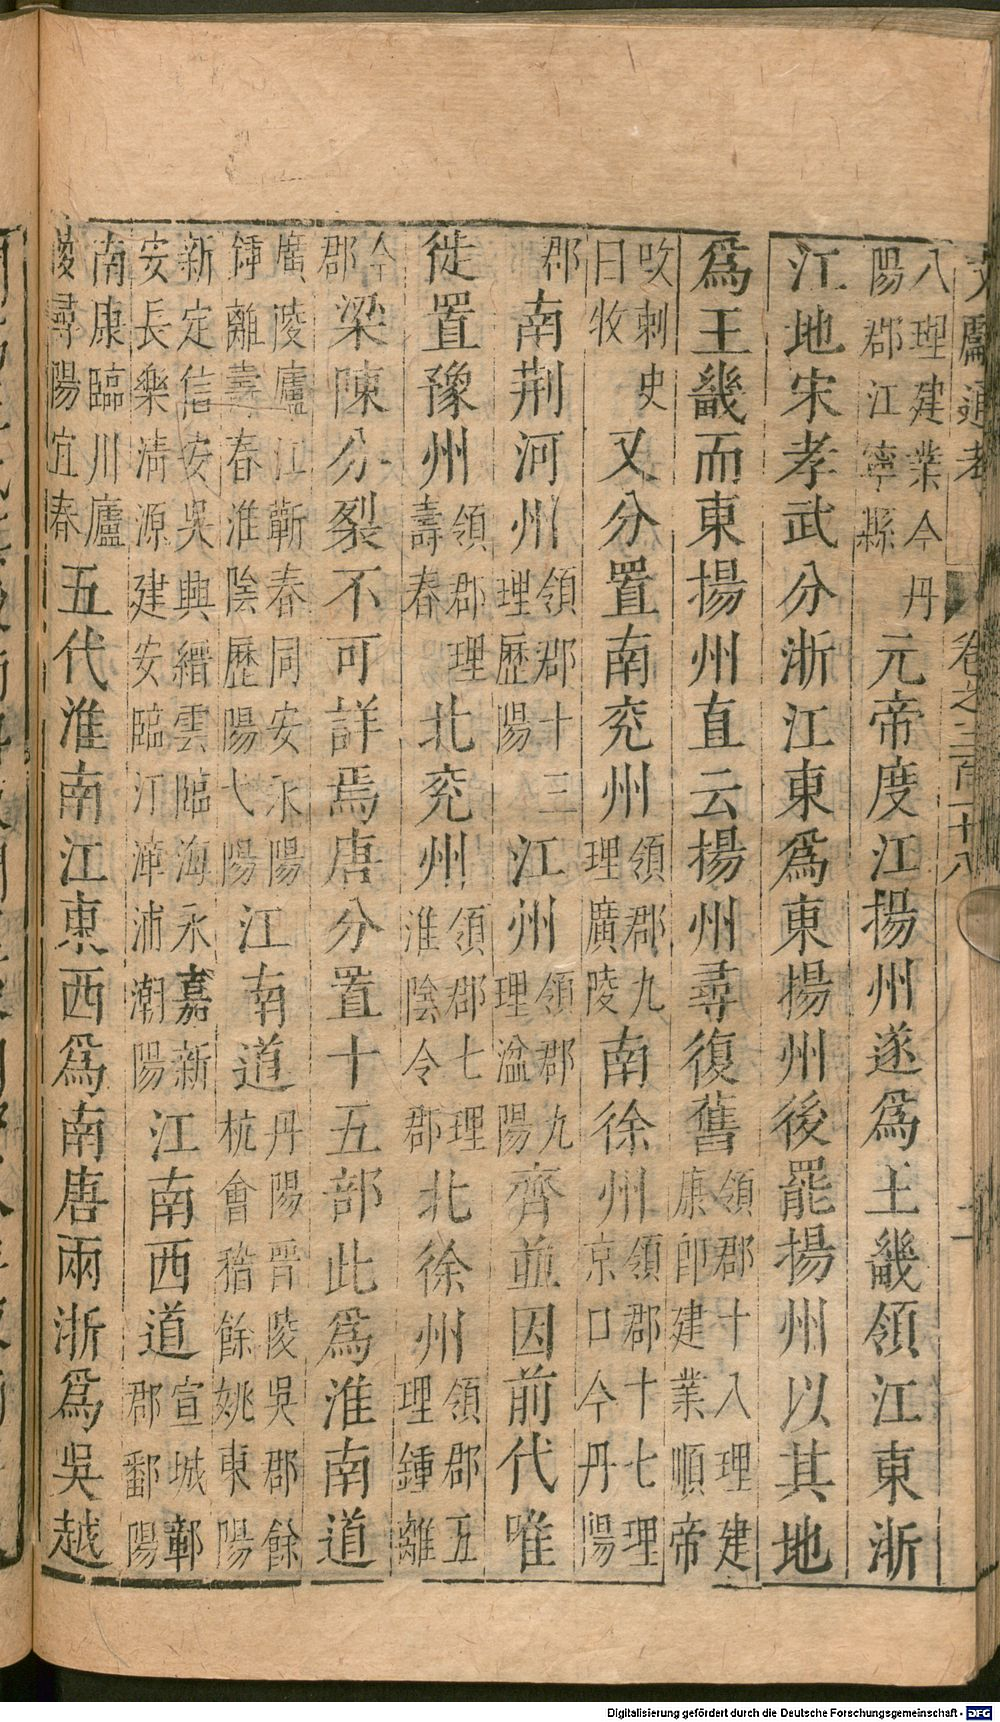 文獻通考 卷之三百十八 二
八理建業今丹陽郡江寧縣元帝度江揚州遂爲王畿領江東浙
江地宋孝武分浙江東爲東揚州後罷揚州以其地
爲王畿而東揚州直云揚州尋復舊領郡十八理建康卽建業順帝
改刺史曰牧又分置南兖州領郡九理廣陵南徐州領郡十七理京口今丹陽
郡南荆河州領郡十三理歷陽江州領郡九理湓陽齊並因前代唯
徙置豫州領郡理壽春北兖州領郡七理淮陰令郡北徐州領郡五理鍾離
今郡梁陳分裂不可詳焉唐分置十五部此爲淮南道
廣陵廬江蘄春同安永陽鍾離壽春淮陰歷陽弋陽江南道丹陽晉陵吳郡餘杭會稽餘姚東陽
新定信安吳興縉雲臨海永嘉新安長樂清源建安臨汀漳浦潮陽江南西道宣城鄣郡鄱陽
南康臨川廬陵尋陽宜春五代淮南江東西爲南唐兩浙爲吳越
Digitalisierung gefördert durch die Deutsche Forschungsgemeinschaft - DFG